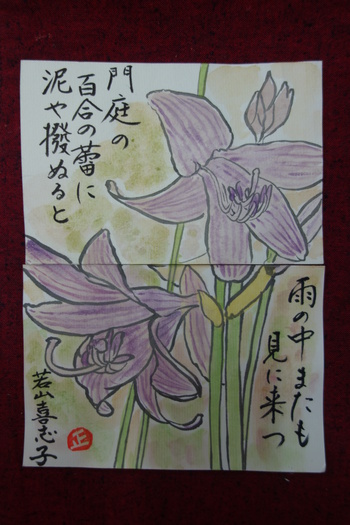 門庭の
百合の蕾に
泥や撥ぬると
雨の中またも
見に来つ
若山喜志子
正